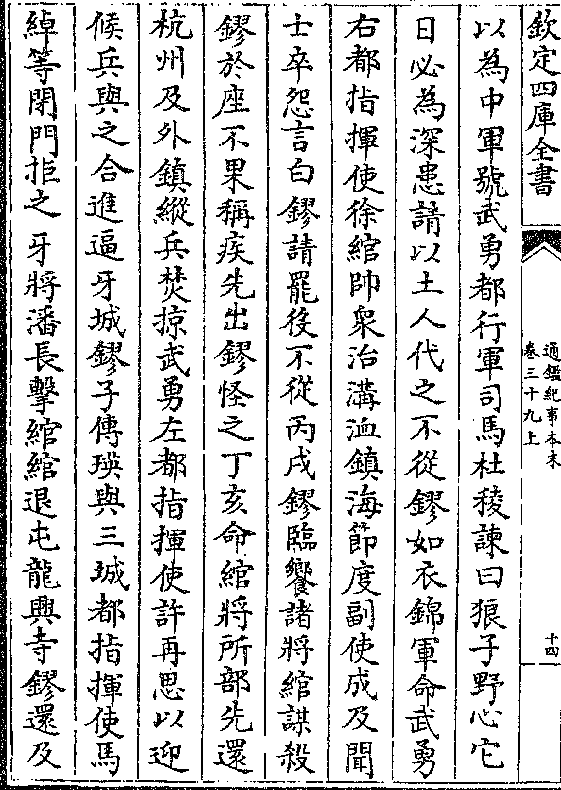 欽定四庫全書
通鑑紀事本末
卷三十九上
十四
以為中軍號武勇都行軍司馬杜稜諫曰狼子野心它
日必為深患請以土人代之不從鏐如衣錦軍命武勇
右都指揮使徐綰帥衆治溝洫鎮海節度副使成及聞
士卒怨言白鏐請罷役不從丙戌鏐臨饗諸將綰謀殺
鏐於座不果稱疾先出鏐怪之丁亥命綰將所部先還
杭州及外鎮縱兵焚掠武勇左都指揮使許再思以迎
候兵與之合進逼牙城鏐子傳瑛與三城都指揮使馬
綽等閉門拒之牙將潘長擊綰綰退屯龍興寺鏐還及